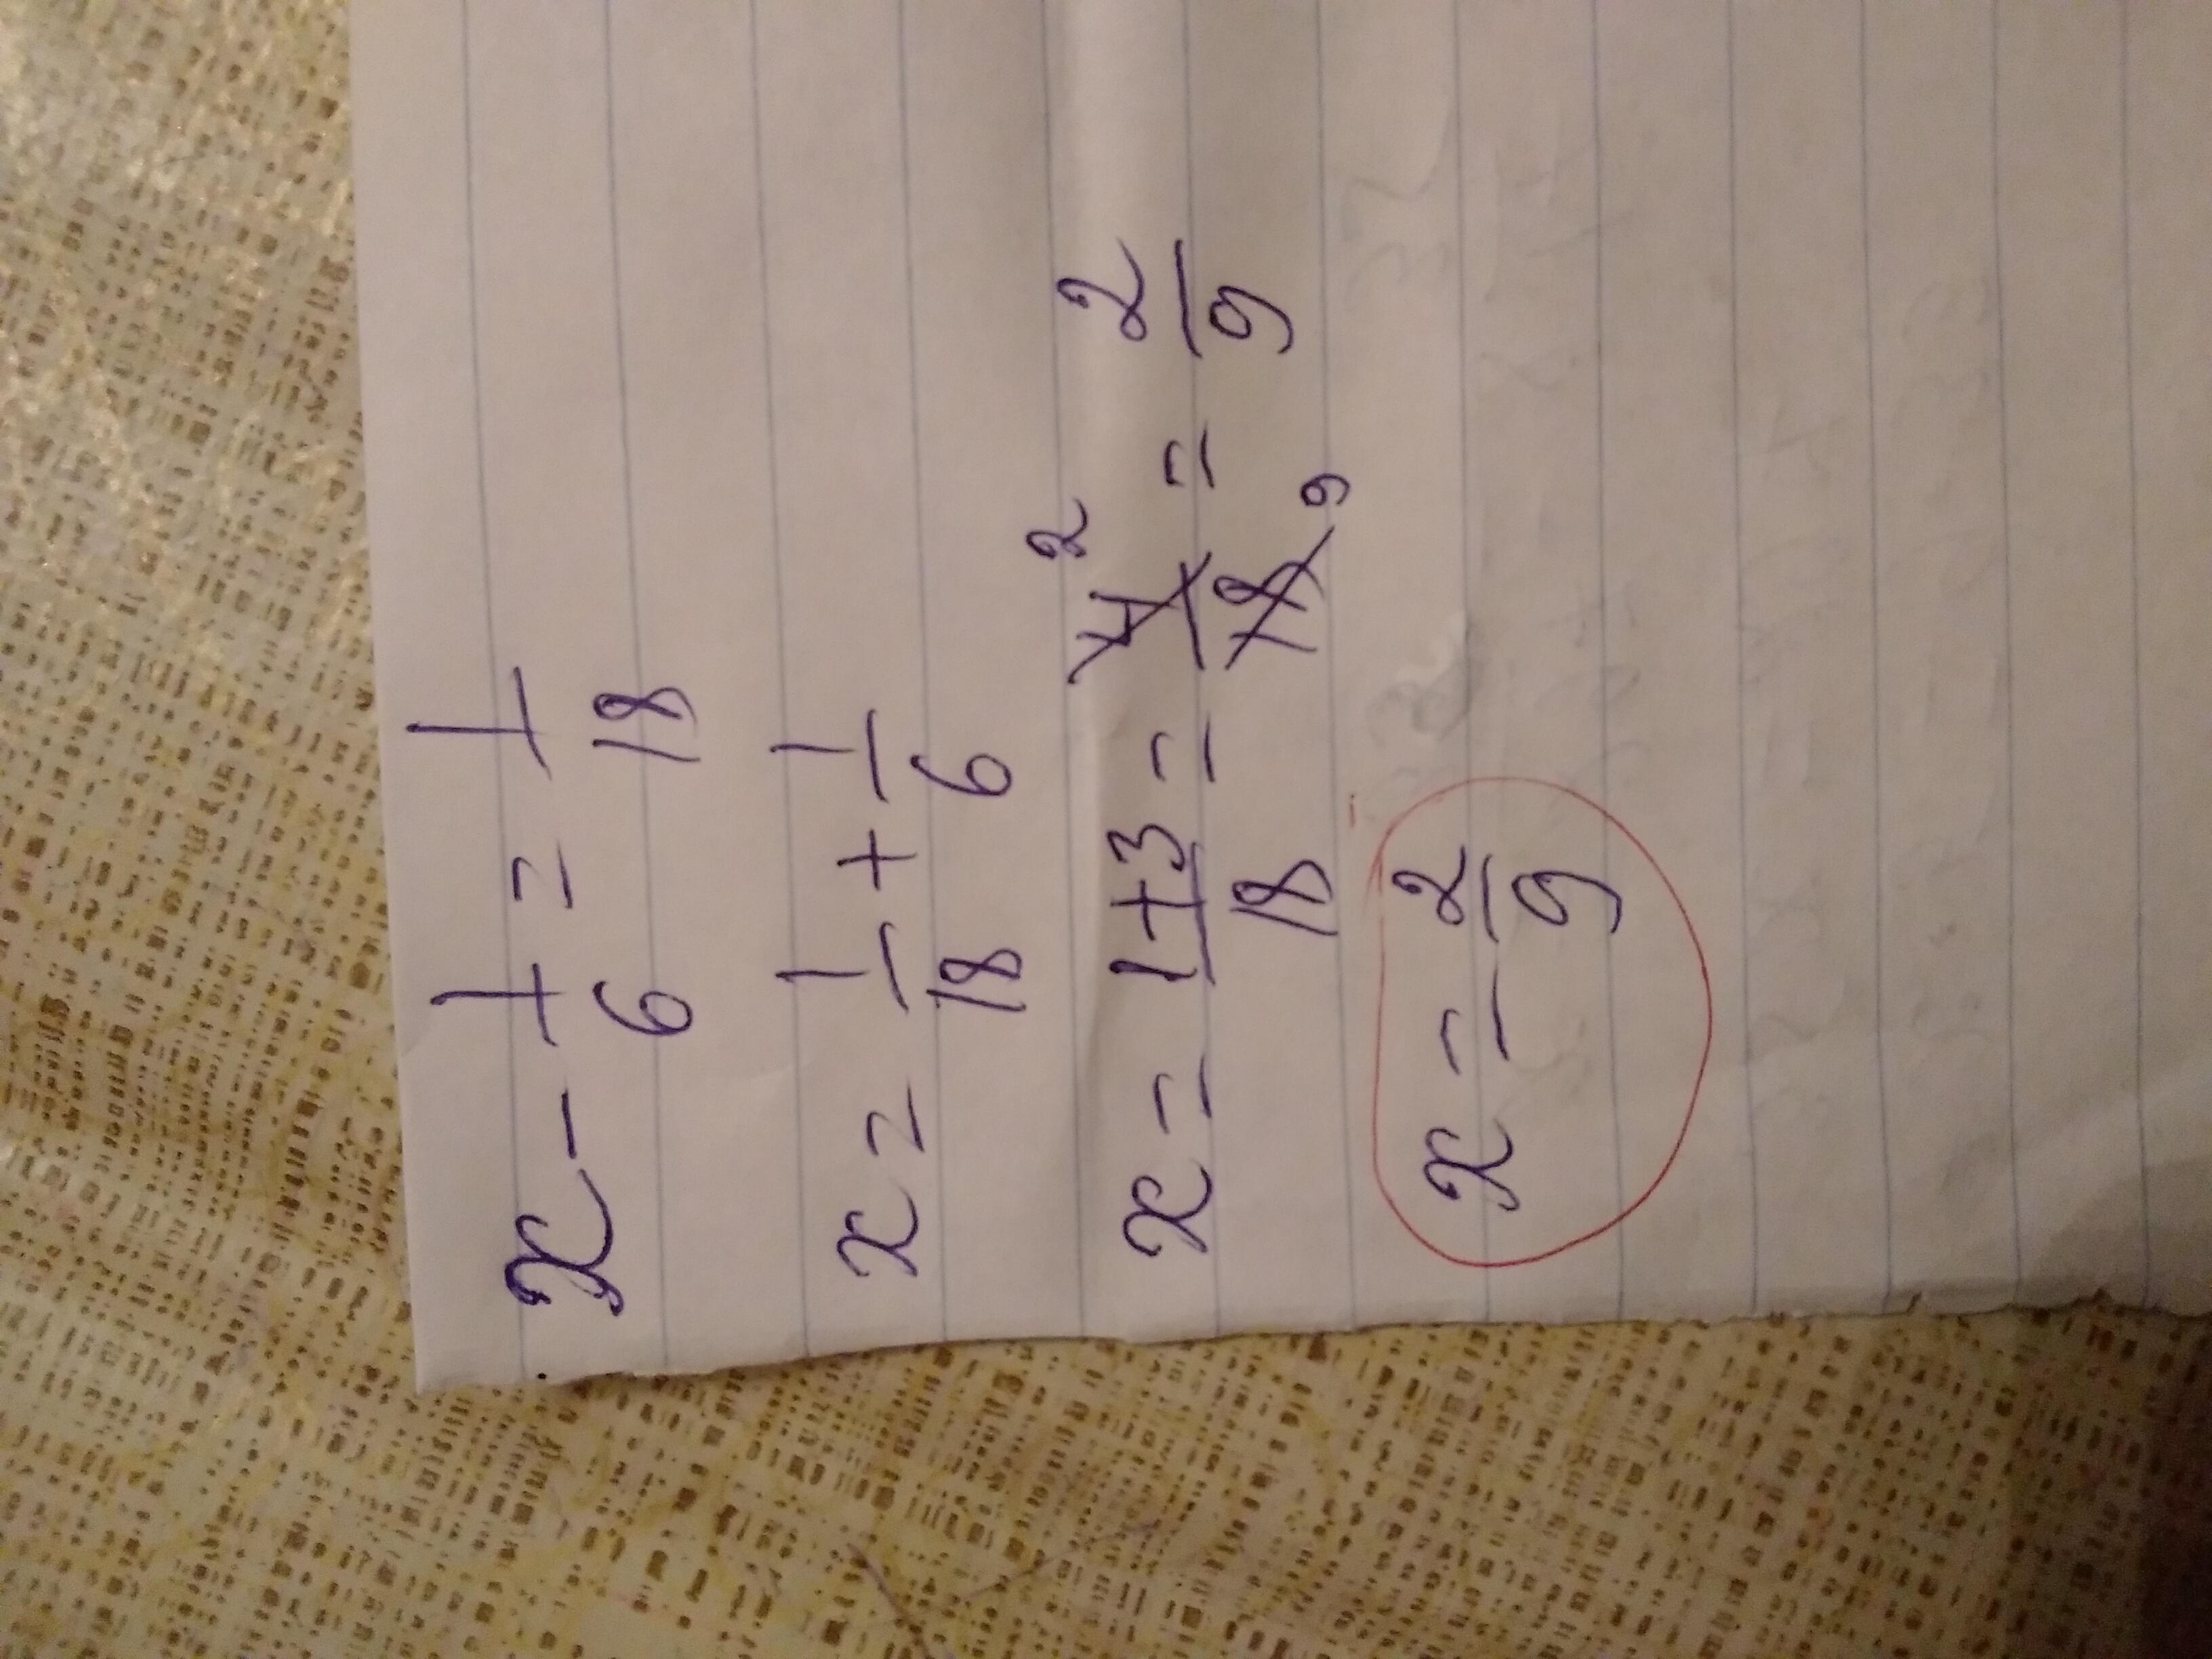 x - 1/6 = 1/18
x = 1/18 + 1/6
x = 1+3/18 = 4/18 2 9 = 2/9
x = 2/9